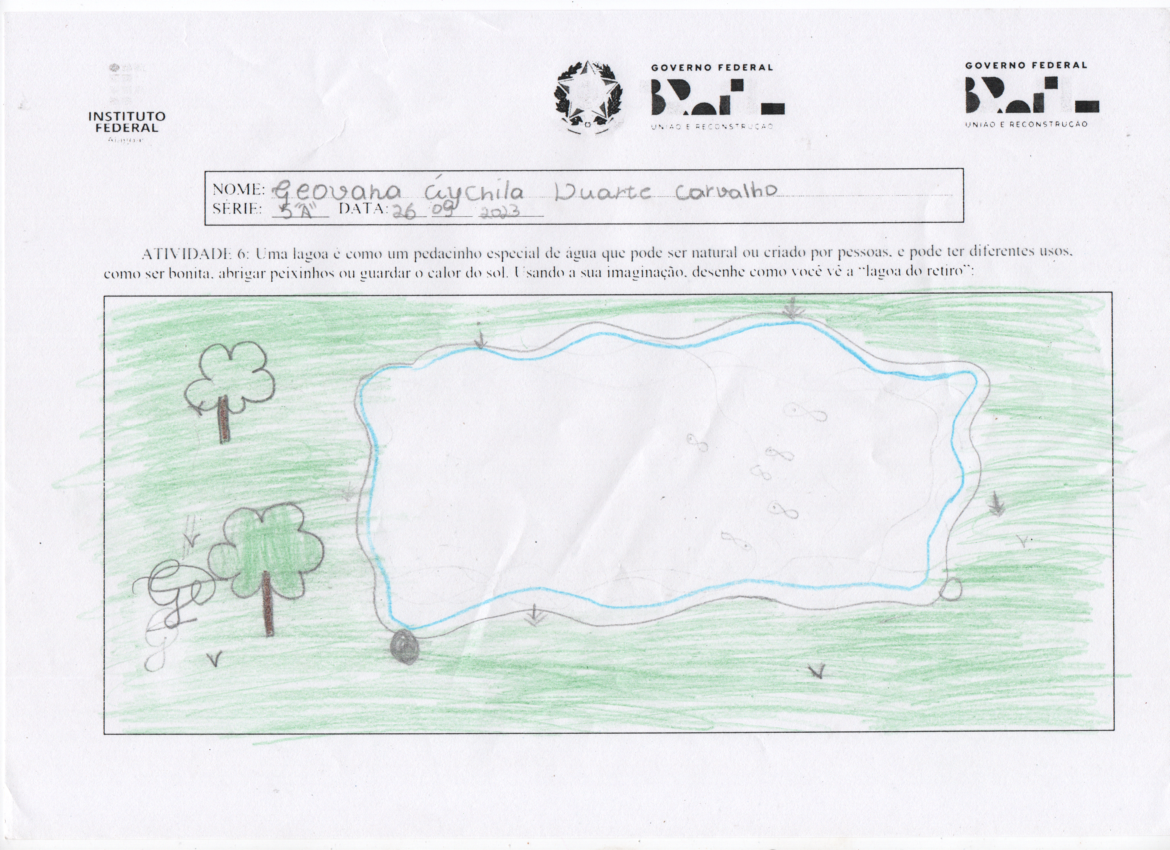 INSTITUTO
FEDERAL
GOVERNO FEDERAL
BRASIL
UNIÃO E RECONSTRUÇÃO
GOVERNO FEDERAL
BRASIL
UNIÃO E RECONSTRUÇÃO
NOME: Geovana Áychila Duarte Carvalho
SÉRIE: 5"A" DATA: 26 09 2023
ATIVIDADE 6: Uma lagoa é como um pedacinho especial de água que pode ser natural ou criado por pessoas, e pode ter diferentes usos,
como ser bonita, abrigar peixinhos ou guardar o calor do sol. Usando a sua imaginação, desenhe como você vê a “lagoa do retiro”: